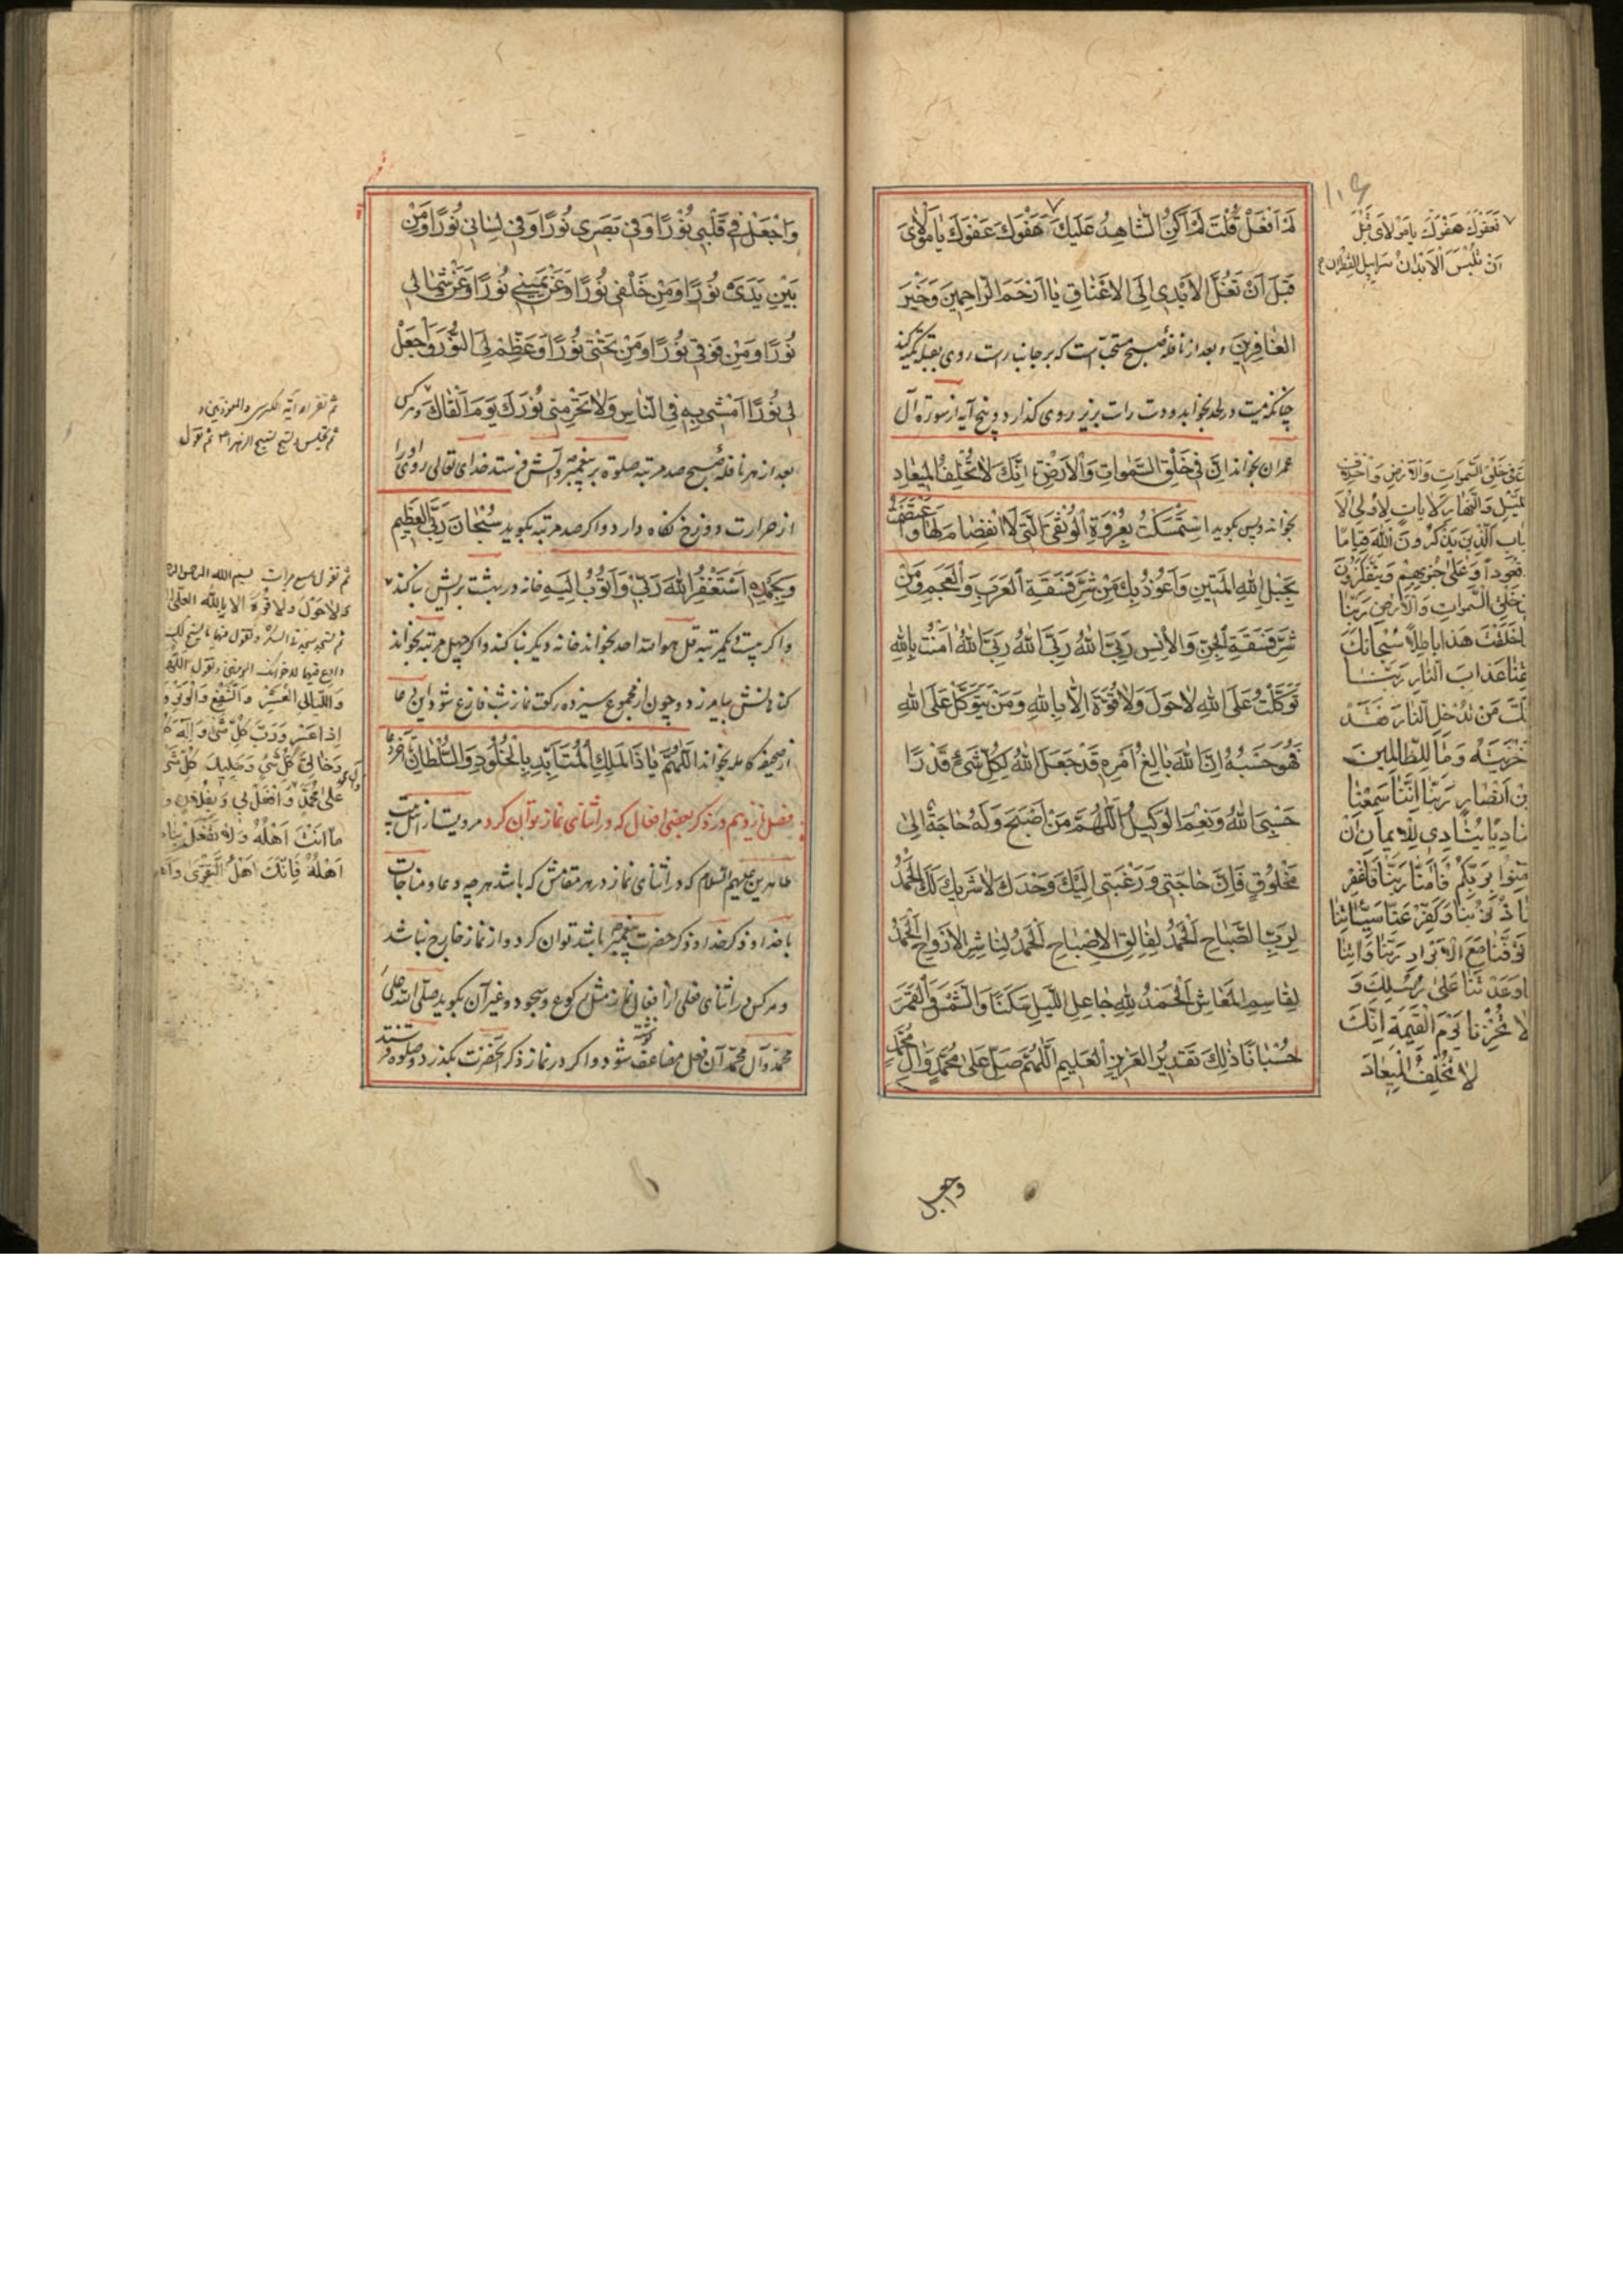 لَمْ اَفْعَلْ قُلْتَ لَمْ اَكُنِ الشّاهِدُ عَلَيْكَ عَفْوَكَ عَفْوَكَ يا مَوْلايَ
قَبْلَ اَنْ تُغَلَّ الاَيْدي اِلَى الاَعْناقِ يا اَرْحَمَ الرّاحِمينَ وَخَيْرَ
الغافِرينَ و بعد از نافلهٔ صبح مستحبّ است كه بر جانب راست روى بقبله تكيه كند
چنانكه ميت در لحد بخوابد و دست راست بزير روى كذارد و پنج آيه از سورة آل
عمران بخواند اِنَّ في خَلْقِ السَّمواتِ وَالاَرْضِ اِنَّكَ لا تُخْلِفُ الميعادِ
بخواند و پس بكويد اسْتَمْسَكْتُ بِعُرْوَةِ الوُثْقَى الَّتي لاَ انْفِصامَ لَها وَاعْتَصَمْتُ
بِحَبْلِ اللهِ المَتينِ وَاَعُوذُ بِكَ مِنْ شَرِّ فَسَقَةِ العَرَبِ وَالعَجَمِ وَمِنْ
شَرِّ فَسَقَةِ الجِنِّ وَالاِنْسِ رَبِّيَ اللهُ رَبِّيَ اللهُ رَبِّيَ اللهُ امَنْتُ بِاللهِ
تَوَكَّلْتُ عَلَى اللهِ لا حَوْلَ وَلا قُوَّةَ اِلّا بِاللهِ وَمَنْ يَتَوَكَّلْ عَلَى اللهِ
فَهُوَ حَسْبُهُ اِنَّ اللهَ بالِغُ اَمْرِهِ قَدْ جَعَلَ اللهُ لِكُلِّ شَيْءٍ قَدْرًا
حَسْبِيَ اللهُ وَنِعْمَ الوَكيلُ اَللّهُمَّ مَنْ اَصْبَحَ وَلَهُ حاجَةٌ اِلى
مَخْلُوقٍ فَاِنَّ حاجَتي وَرَغْبَتي اِلَيْكَ وَحْدَكَ لا شَريكَ لَكَ الحَمْدُ
لِرَبِّ الصَّباحِ الحَمْدُ لِفالِقِ الاِصْباحِ الحَمْدُ لِناشِرِ الاَرْواحِ الحَمْدُ
لِقاسِمِ المَعاشِ الحَمْدُ لِلهِ جاعِلِ اللَّيْلِ سَكَنًا وَالشَّمْسَ وَالْقَمَرَ
حُسْبانًا ذلِكَ تَقْديرُ العَزيزِ العَليمِ اَللّهُمَّ صَلِّ عَلى مُحَمَّدٍ وَآلِ مُحَمَّدٍ
واجعل
١١٤
فَعَفْوَكَ عَفْوَكَ يا مَوْلايَ قَبْلَ
اَنْ تُلْبَسَ الاَبْدانُ سَرابيلَ القَطِرانِ
في خَلْقِ السَّمواتِ وَالاَرْضِ وَاخْتِلافِ
اللَّيْلِ وَالنَّهارِ لاَياتٍ لِاُولِي الاَ
لبابِ الَّذينَ يَذْكُرُونَ اللهَ قِيامًا
وَقُعُودًا وَعَلى جُنُوبِهِمْ وَيَتَفَكَّرُونَ
في خَلْقِ السَّمواتِ وَالاَرْضِ رَبَّنا
ما خَلَقْتَ هَذا باطِلًا سُبْحانَكَ
فَقِنا عَذابَ النّارِ رَبَّنا
اِنَّكَ مَنْ تُدْخِلِ النّارَ فَقَدْ
اَخْزَيْتَهُ وَما لِلظّالِمينَ
مِنْ اَنْصارٍ رَبَّنا اِنَّنا سَمِعْنا
مُنادِيًا يُنادي لِلْايمانِ اَنْ
آمِنُوا بِرَبِّكُمْ فَآمَنّا رَبَّنا فَاغْفِرْ
لَنا ذُنُوبَنا وَكَفِّرْ عَنّا سَيِّئاتِنا
وَتَوَفَّنا مَعَ الاَبْرارِ رَبَّنا وَاتِنا
ما وَعَدْتَنا عَلى رُسُلِكَ وَ
لا تُخْزِنا يَوْمَ القِيمَةِ اِنَّكَ
لا تُخْلِفُ الميعادَ
وَاجْعَلْ في قَلْبي نُوْرًا وَفي بَصَري نُورًا وَفي لِساني نُورًا وَمِنْ
بَيْنِ يَدَيَّ نُورًا وَمِنْ خَلْفي نُورًا وَعَنْ يَميني نُورًا وَعَنْ شِمالي
نُورًا وَمِنْ فَوْقي نُورًا وَمِنْ تَحْتي نُورًا وَعَظِّمْ لِيَ النُّورَ وَاجْعَلْ
لي نُورًا اَمْشي بِهِ فِي النّاسِ وَلا تَحْرِمْني نُورَكَ يَوْمَ اَلْقاكَ و هركس
بعد از هر نافلهٔ صبح صد مرتبه صلوة بر پيغمبر و آلش فرستد خداى تعالى روى او را
از حرارت دوزخ نكاه دارد و اكر صد مرتبه بكويد سُبْحانَ رَبِّيَ العَظيمِ
وَبِحَمْدِهِ اَسْتَغْفِرُ اللهَ رَبّي وَاَتُوبُ اِلَيْهِ خانه در بهشت برايش بنا كند
و اكر بيست و يكمرتبه قل هو الله احد بخواند خانه ديكر بنا كند و اكر چهل مرتبه بخواند
كناهانش بيامرزد و چون از مجموع سيزده ركعت نماز شب فارغ شود اين دعا
از صحيفه كامله بخواند اَللّهُمَّ يا ذَا المَلِكِ المُتَاَبِّدِ بِالخُلُودِ وَالسُّلْطانِ تا آخر دعا
فصل يازدهم در ذكر بعضى افعال كه در اثناى نماز توان كرد مرويست از ائمه
طاهرين عليهم السلام كه در اثناى نماز در هر مقامش كه باشد هر چه دعا و مناجات
با خدا و ذكر خدا و ذكر حضرت پيغمبر باشد توان كرد و از نماز خارج نباشد
و هركس در اثناى فعلى از افعال نماز مثل ركوع و سجود و غير آن بكويد صلّى الله على
محمّد و آل محمّد آن فعل مضاعف نوشته شود و اكر در نماز ذكر آنحضرت بكذرد و صلوة فرستد
ثم تقرء آية الكرسى و المعوذتين و
ثم تجلس و تسبح تسبيح الزهراء ثم تقول
ثم تقول سبع مرات بسم الله الرحمن الرحيم
وَلا حَوْلَ وَلا قُوَّةَ اِلّا بِاللهِ العَلِيِّ
ثم تسجد سجدة الشكر و تقول فيها
وادع فيها لاخوانك المؤمنين و تقول اللّهم
وَاللَّيالِي العَشْرِ وَالشَّفْعِ وَالْوَتْرِ وَ
اِذا يَسْرِ وَرَبَّ كُلِّ شَيْءٍ وَاِلهَ كُ
وَخالِقَ كُلِّ شَيْءٍ وَمَليكَ كُلِّ شَيْ
عَلى مُحَمَّدٍ وَآلِهِ وَافْعَلْ بي وَبِفُلانٍ وَ
ما اَنْتَ اَهْلُهُ وَلا تَفْعَلْ بِنا ما
اَهْلُهُ فَاِنَّكَ اَهْلُ التَّقْوى وَاَه